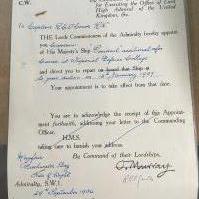 C.W.
for Executing the Office of Lord
High Admiral of the United
Kingdom, &c.
To Captain
THE Lords Commissioners of the Admiralty hereby appoint
you
of His Majesty's Ship President additional for
course at Imperial Defence College
and direct you to repair on board that Ship at
to your duties on 1937.
Your appointment is to take effect from that date.
You are to acknowledge the receipt of this Appointment
forthwith, addressing your letter to the Commanding
Officer,
H.M.S.
taking care to furnish your address.
By Command of their Lordships,
Isle of Wight
Admiralty, S.W.1.
September 1936